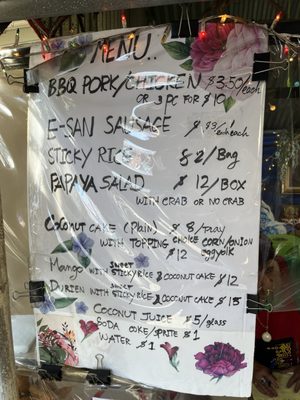 MENU..
BBQ PORK/CHICKEN $3.50/each
OR 3 PC FOR $10
E-SAN SAUSAGE $3/each
STICKY RICE $2/Bag
PAPAYA SALAD $12/BOX
WITH CRAB OR NO CRAB
Coconut CAKE (Plain) $8/tray
WITH TOPPING CHOICE CORN/ONION
$12 eggyolk
Mango WITH SWEET STICKY RICE & COCONUT CAKE $12
DURIEN WITH SWEET STICKY RICE & COCONUT CAKE $15
COCONUT JUICE $5/glass
SODA COKE/SPRITE $1
WATER $1